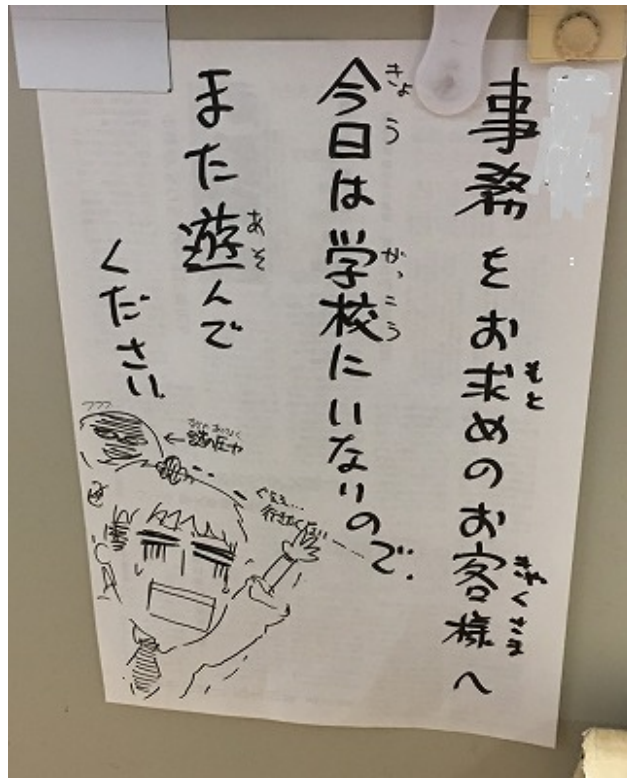 事務をお求めのお客様へ
今日は学校にいないので、
また遊んで
ください
謎の圧力
ぐぇぇ…
行きたくない…